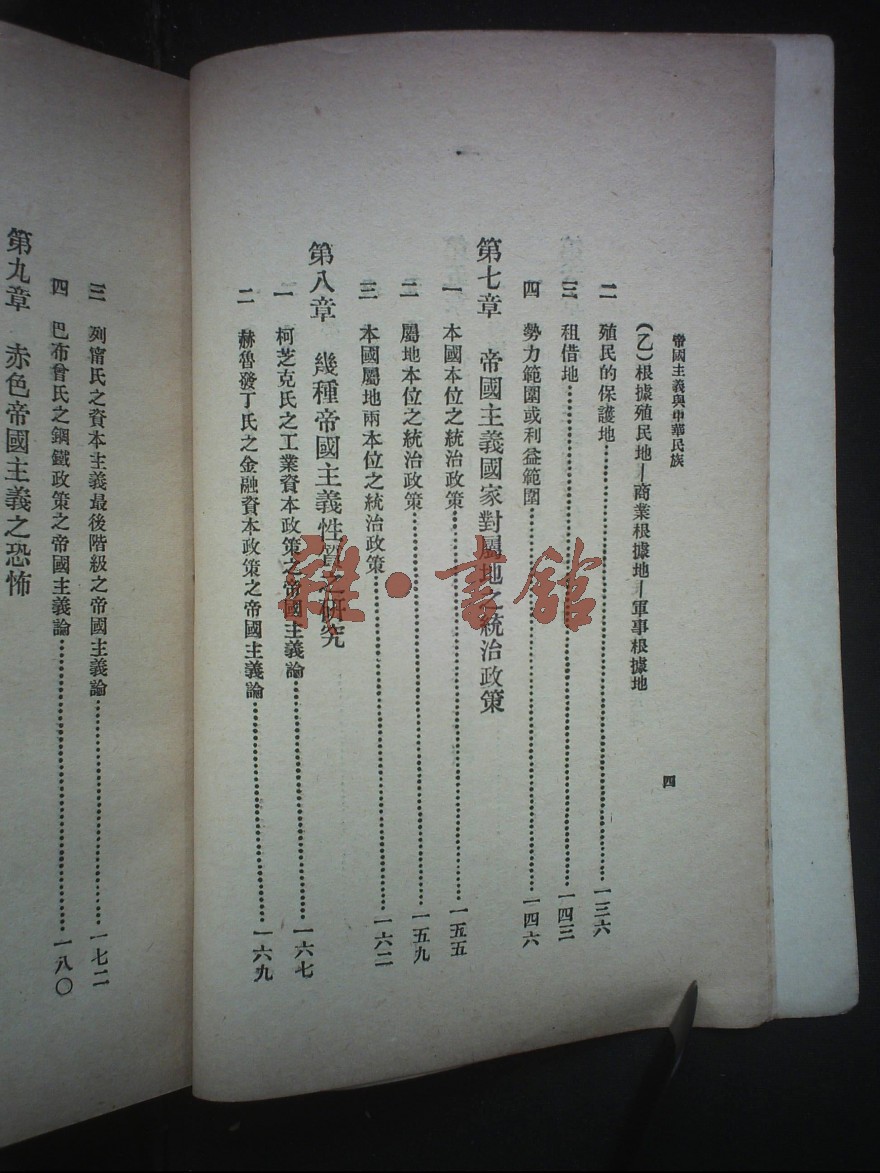 帝國主義與中華民族
四
（乙）根據殖民地—商業根據地—軍事根據地
二 殖民的保護地…………一三六
三 租借地…………一四三
四 勢力範圍或利益範圍…………一四六
第七章 帝國主義國家對屬地之統治政策
一 本國本位之統治政策…………一五五
二 屬地本位之統治政策…………一五九
三 本國屬地兩本位之統治政策…………一六二
第八章 幾種帝國主義性質之研究
一 柯芝克氏之工業資本政策之帝國主義論…………一六七
二 赫魯發丁氏之金融資本政策之帝國主義論…………一六九
三 列甯氏之資本主義最後階級之帝國主義論…………一七二
四 巴布曾氏之鋼鐵政策之帝國主義論…………一八〇
第九章 赤色帝國主義之恐怖
雜·書館